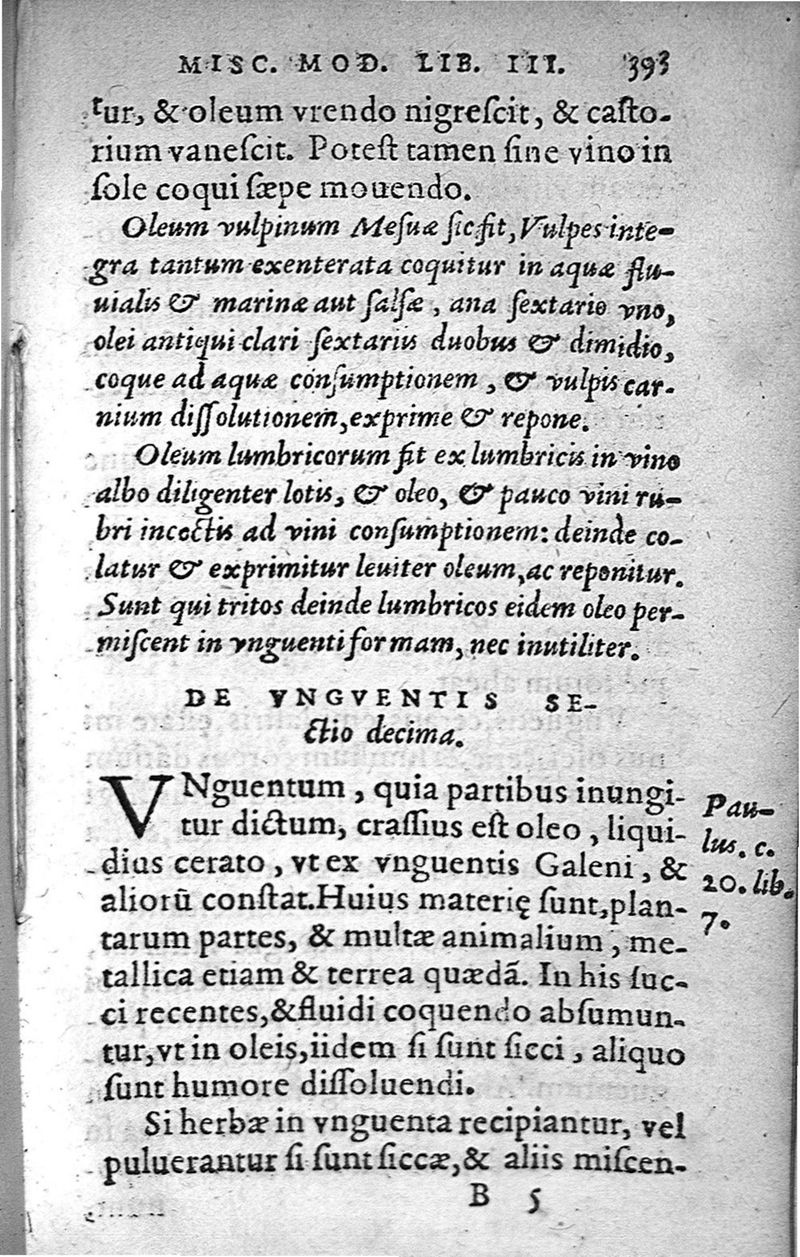 MISC. MOD. LIB. III. 393
tur, & oleum vrendo nigreſcit, & caſto-
rium vaneſcit. Poteſt tamen ſine vino in
ſole coqui ſæpe mouendo.
Oleum vulpinum Meſuæ ſic fit, Vulpes inte-
gra tantum exenterata coquitur in aquæ flu-
uialis & marinæ aut ſalſæ, ana ſextario vno,
olei antiqui clari ſextariis duobus & dimidio,
coque ad aquæ conſumptionem, & vulpis car-
nium diſſolutionem, exprime & repone.
Oleum lumbricorum fit ex lumbricis in vino
albo diligenter lotis, & oleo, & pauco vini ru-
bri incoctis ad vini conſumptionem: deinde co-
latur & exprimitur leuiter oleum, ac reponitur.
Sunt qui tritos deinde lumbricos eidem oleo per-
miſcent in vnguenti formam, nec inutiliter.
DE VNGVENTIS SE-
ctio decima.
VNguentum, quia partibus inungi-
tur dictum, craſſius eſt oleo, liqui-
dius cerato, vt ex vnguentis Galeni, &
aliorū conſtat. Huius materię ſunt, plan-
tarum partes, & multæ animalium, me-
tallica etiam & terrea quædā. In his ſuc-
ci recentes, & fluidi coquendo abſumun-
tur, vt in oleis, iidem ſi ſunt ſicci, aliquo
ſunt humore diſſoluendi.
Si herbæ in vnguenta recipiantur, vel
puluerantur ſi ſunt ſiccæ, & aliis miſcen-
B 5
Pau-
lus. c.
20. lib.
7.